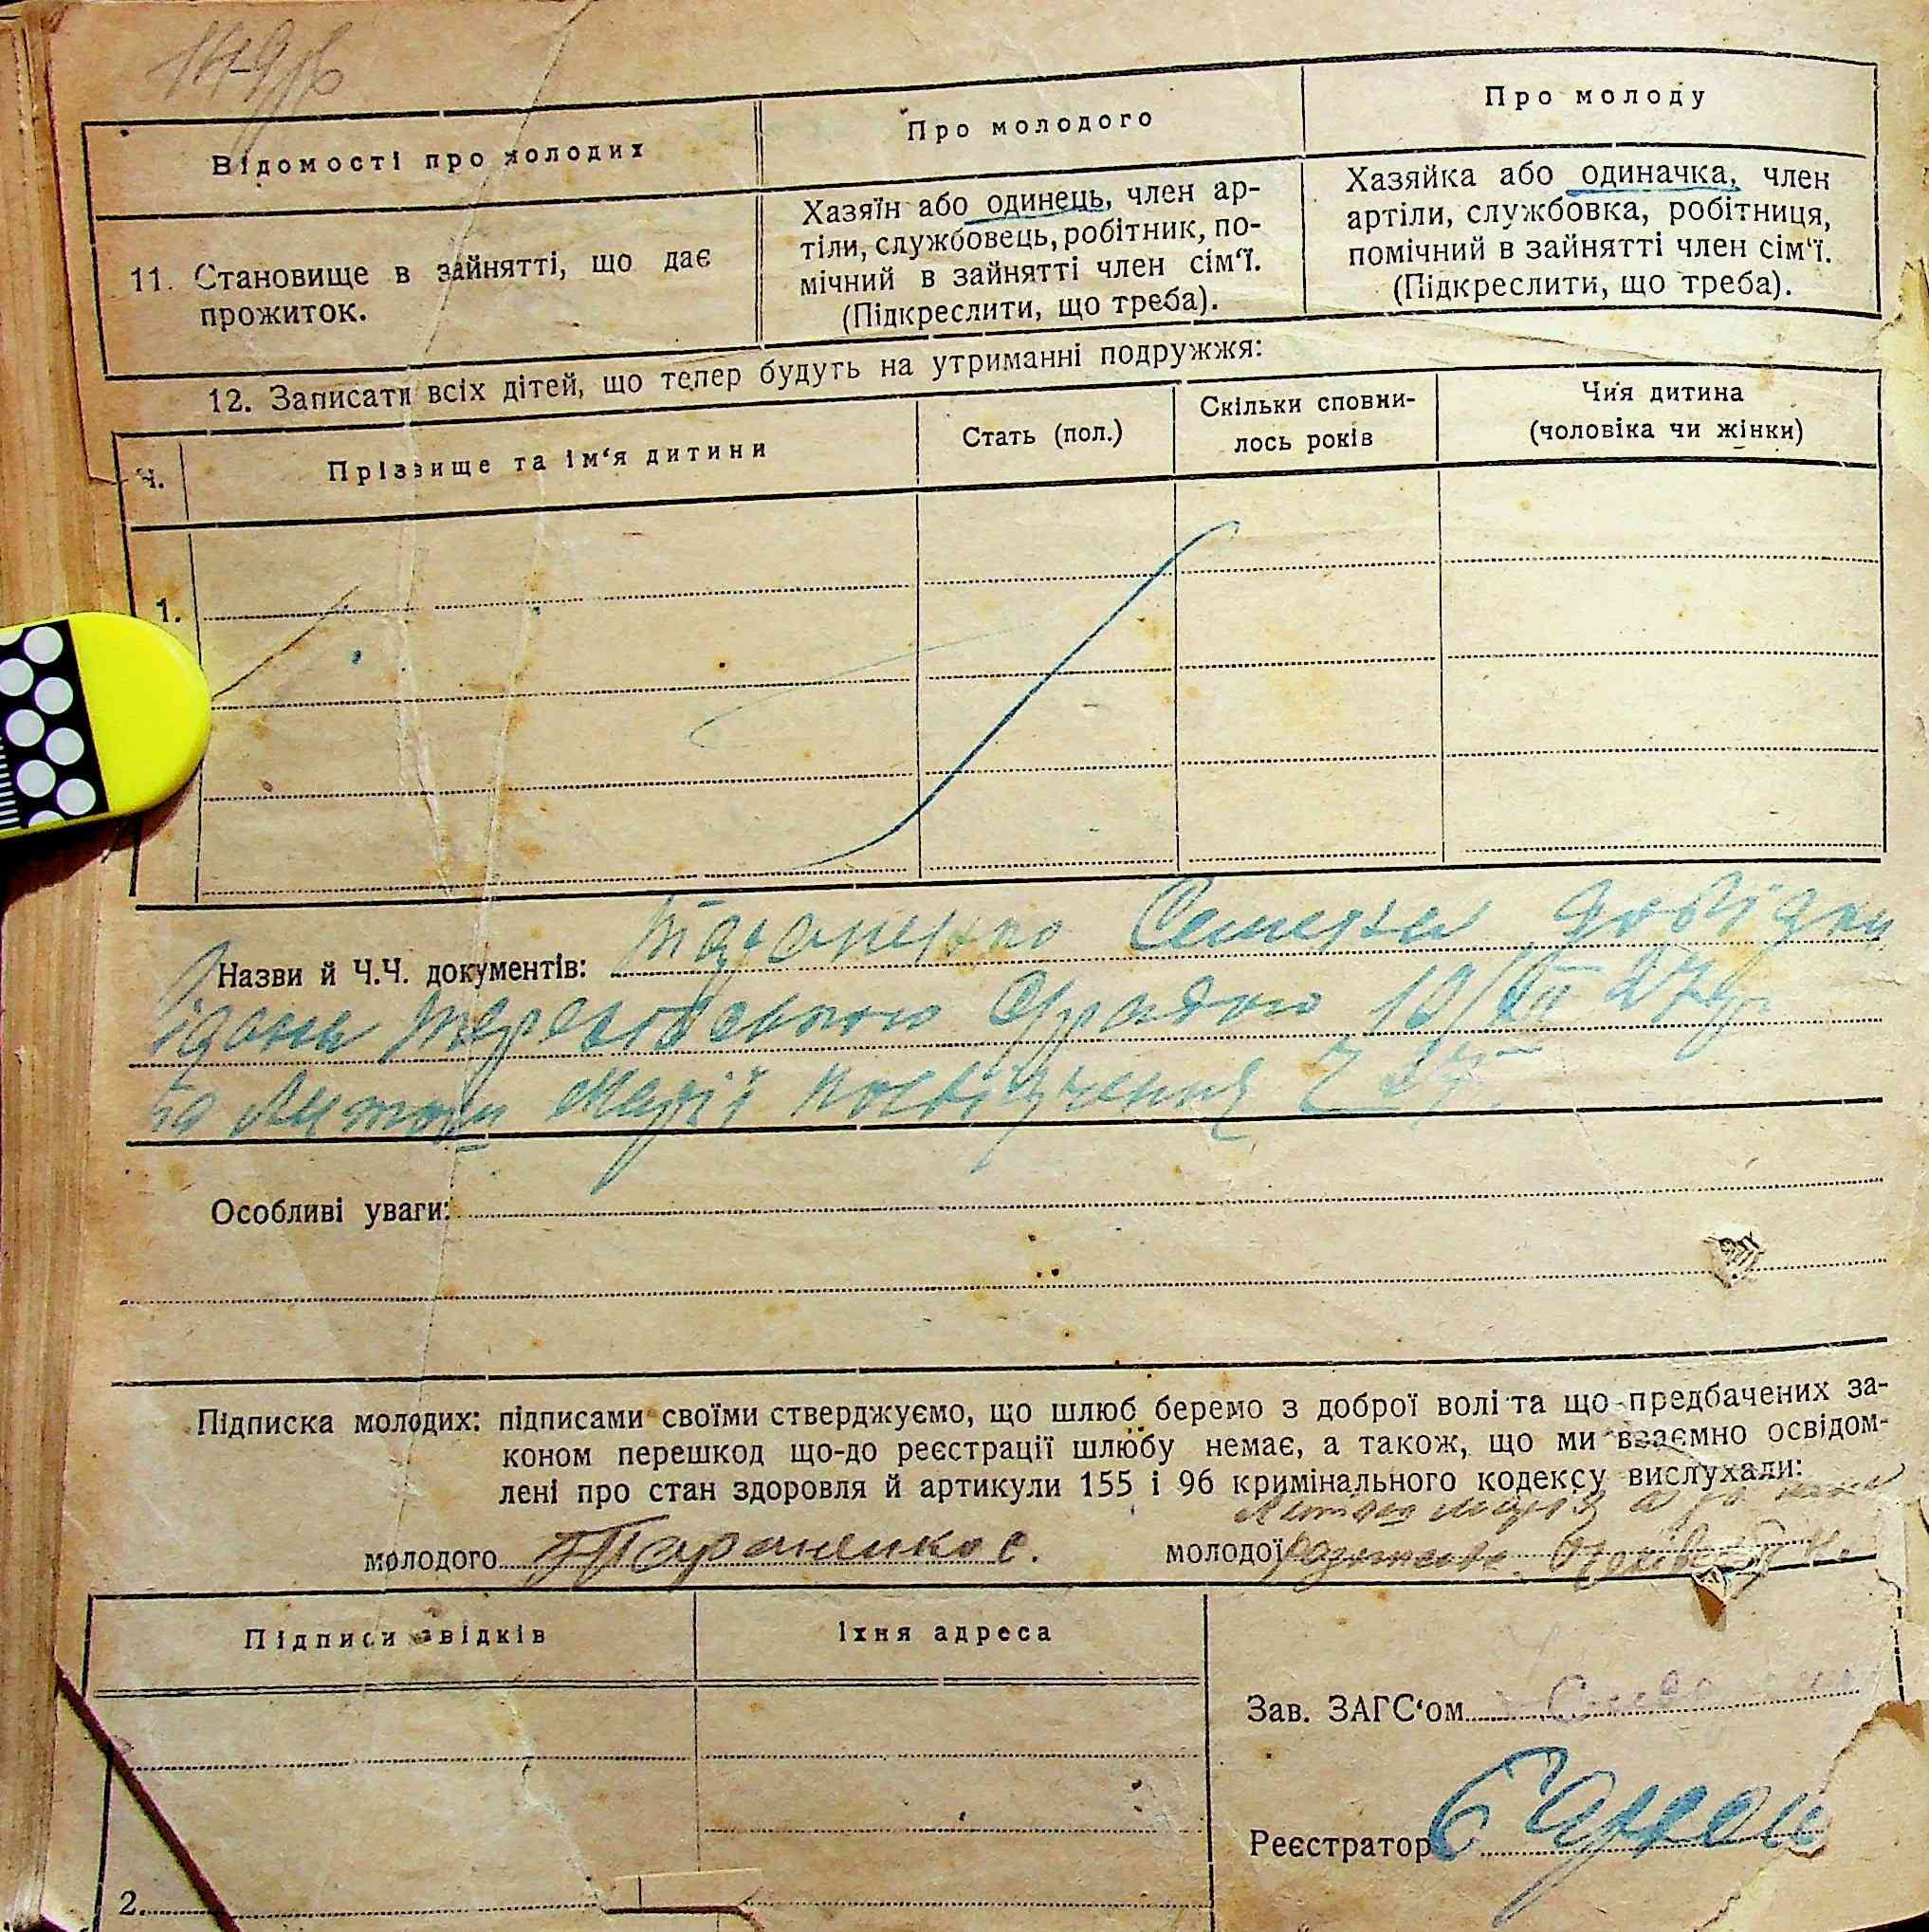 149
Відомості про молодих
Про молодого
Про молоду
11. Становище в зайнятті, що дає
прожиток.
Хазяїн або одинець, член ар-
тіли, службовець, робітник, по-
мічний в зайнятті член сім'ї.
(Підкреслити, що треба).
Хазяйка або одиначка, член
артіли, службовка, робітниця,
помічний в зайнятті член сім'ї.
(Підкреслити, що треба).
12. Записати всіх дітей, що тепер будуть на утриманні подружжя:
Ч.
Прізвище та ім'я дитини
Стать (пол.)
Скільки сповни-
лось років
Чия дитина
(чоловіка чи жінки)
1.
Назви й Ч.Ч. документів: Семена довідки
Сільрадою
та Марії посвідчення
Особливі уваги:
Підписка молодих: підписами своїми стверджуємо, що шлюб беремо з доброї волі та що предбачених за-
коном перешкод що-до реєстрації шлюбу немає, а також, що ми взаємно освідом-
лені про стан здоровля й артикули 155 і 96 кримінального кодексу вислухали:
молодого Тараненко С.
молодої
Підписи свідків
Їхня адреса
Зав. ЗАГС'ом
Реєстратор
2.